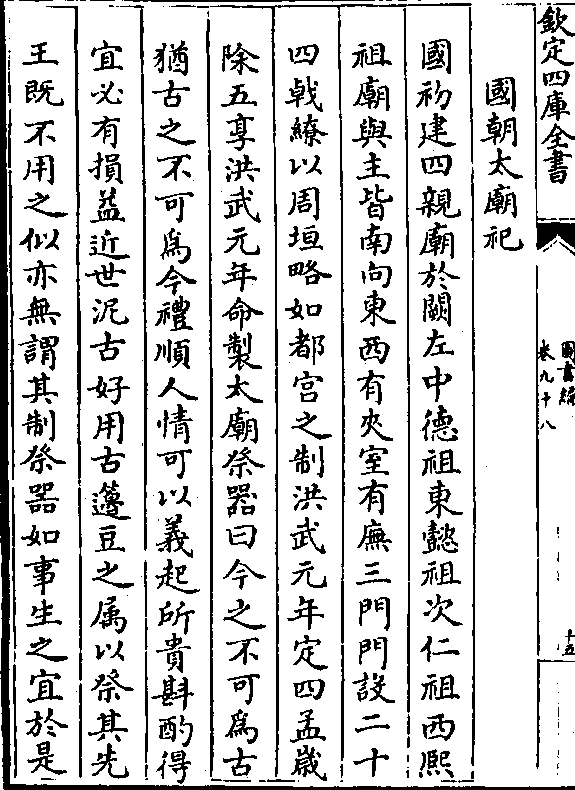 欽定四庫全書
圖書編
卷九十八
十五
國朝太廟祀
國初建四親廟於闕左中德祖東懿祖次仁祖西熙
祖廟與主皆南向東西有夾室有廡三門門設二十
四㦸繚以周垣略如都宫之制洪武元年定四孟歲
除五享洪武元年命製太廟祭器曰今之不可為古
猶古之不可為今禮順人情可以義起所貴斟酌得
宜必有損益近世泥古好用古籩豆之属以祭其先
王既不用之似亦無謂其制祭器如事生之宜於是